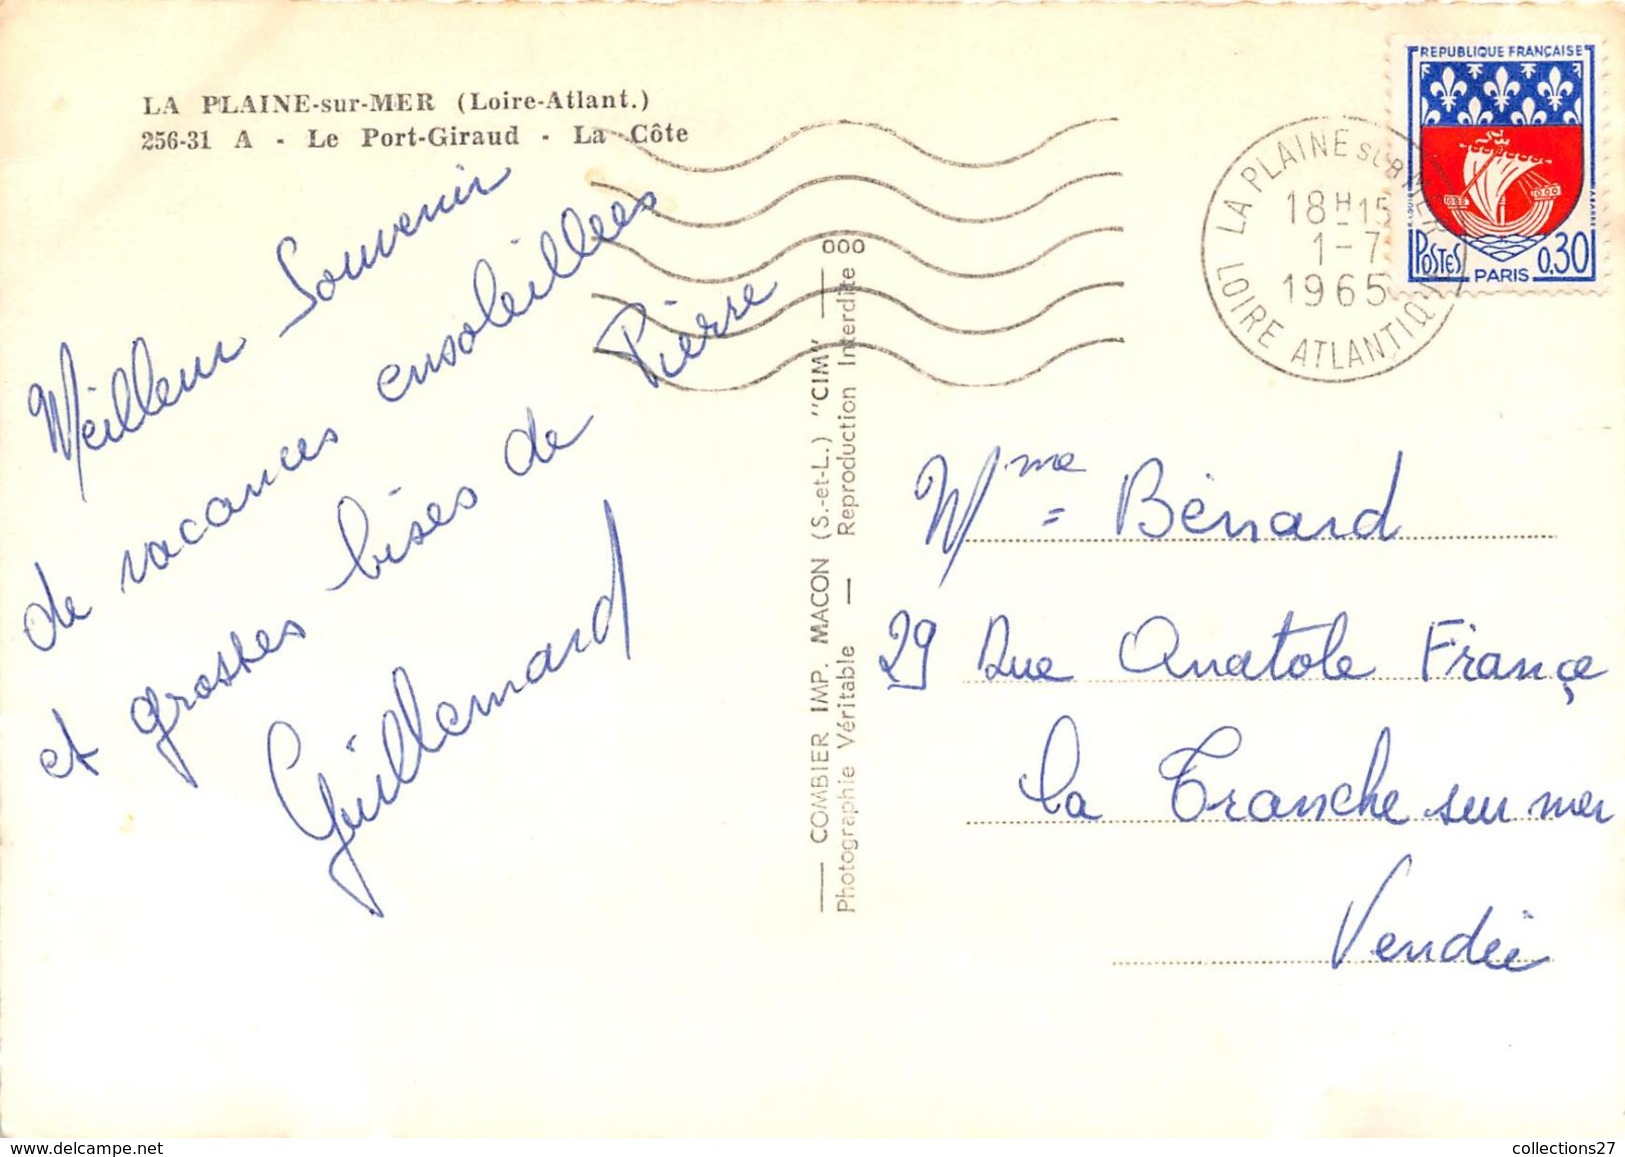 LA PLAINE-sur-MER (Loire-Atlant.)
256-31 A - Le Port-Giraud - La Côte
Meilleur Souvenir
de vacances ensoleillées
et grosses bises de Pierre
Guillemard
COMBIER IMP. MACON (S.-et-L.) "CIM"
Photographie Véritable — Reproduction Interdite
000
LA PLAINE SUR MER
18H15
1-7
1965
LOIRE ATLANTIQUE
REPUBLIQUE FRANÇAISE
POSTES
0,30
PARIS
Mme Bénard
29 Rue Anatole Françe
La Tranche sur mer
Vendée
collections27